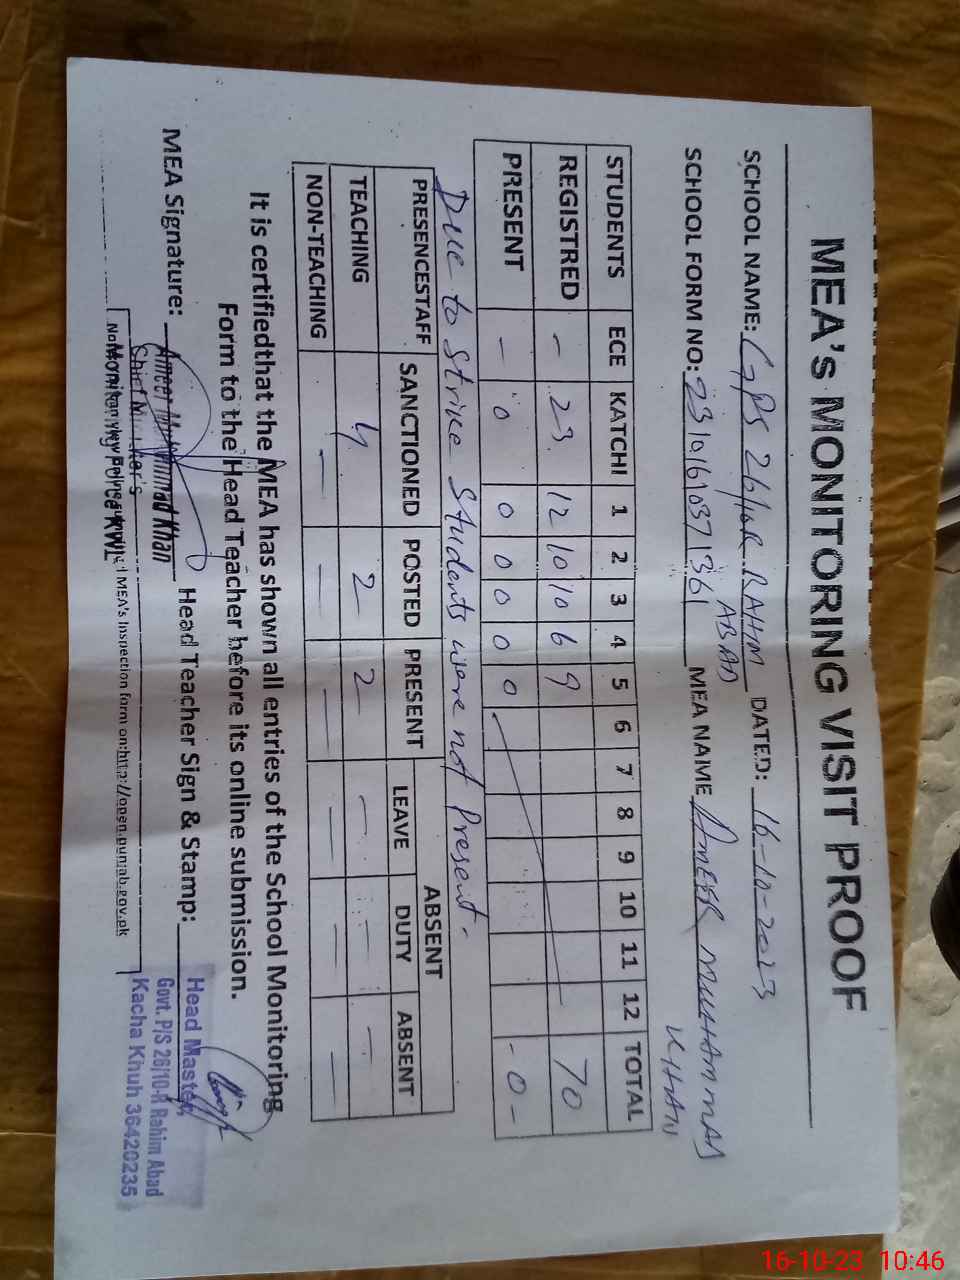 MEA's MONITORING VISIT PROOF
SCHOOL NAME: GPS 26/10R RAHIM ABAD DATED: 16-10-2023
SCHOOL FORM NO: 2310161037136 MEA NAME AMEER MUHAMMAD KHAN
STUDENTS ECE KATCHI 1 2 3 4 5 6 7 8 9 10 11 12 TOTAL
REGISTRED - 23 12 10 10 6 9 70
PRESENT - 0 0 0 0 0 0 -0-
Due to strike students were not present.
PRESENCESTAFF SANCTIONED POSTED PRESENT ABSENT
LEAVE DUTY ABSENT
TEACHING 4 2 2 - - -
NON-TEACHING - - - - - -
It is certifiedthat the MEA has shown all entries of the School Monitoring
Form to the Head Teacher before its online submission.
MEA Signature: Head Teacher Sign & Stamp:
Ameer Muhammad Khan
Chief Minister's
Monitoring Force KWL
MEA's Inspection form on:http://open.punjab.gov.pk
Head Master
Govt. P/S 26/10-R Rahim Abad
Kacha Khuh 36420235
16-10-23 10:46